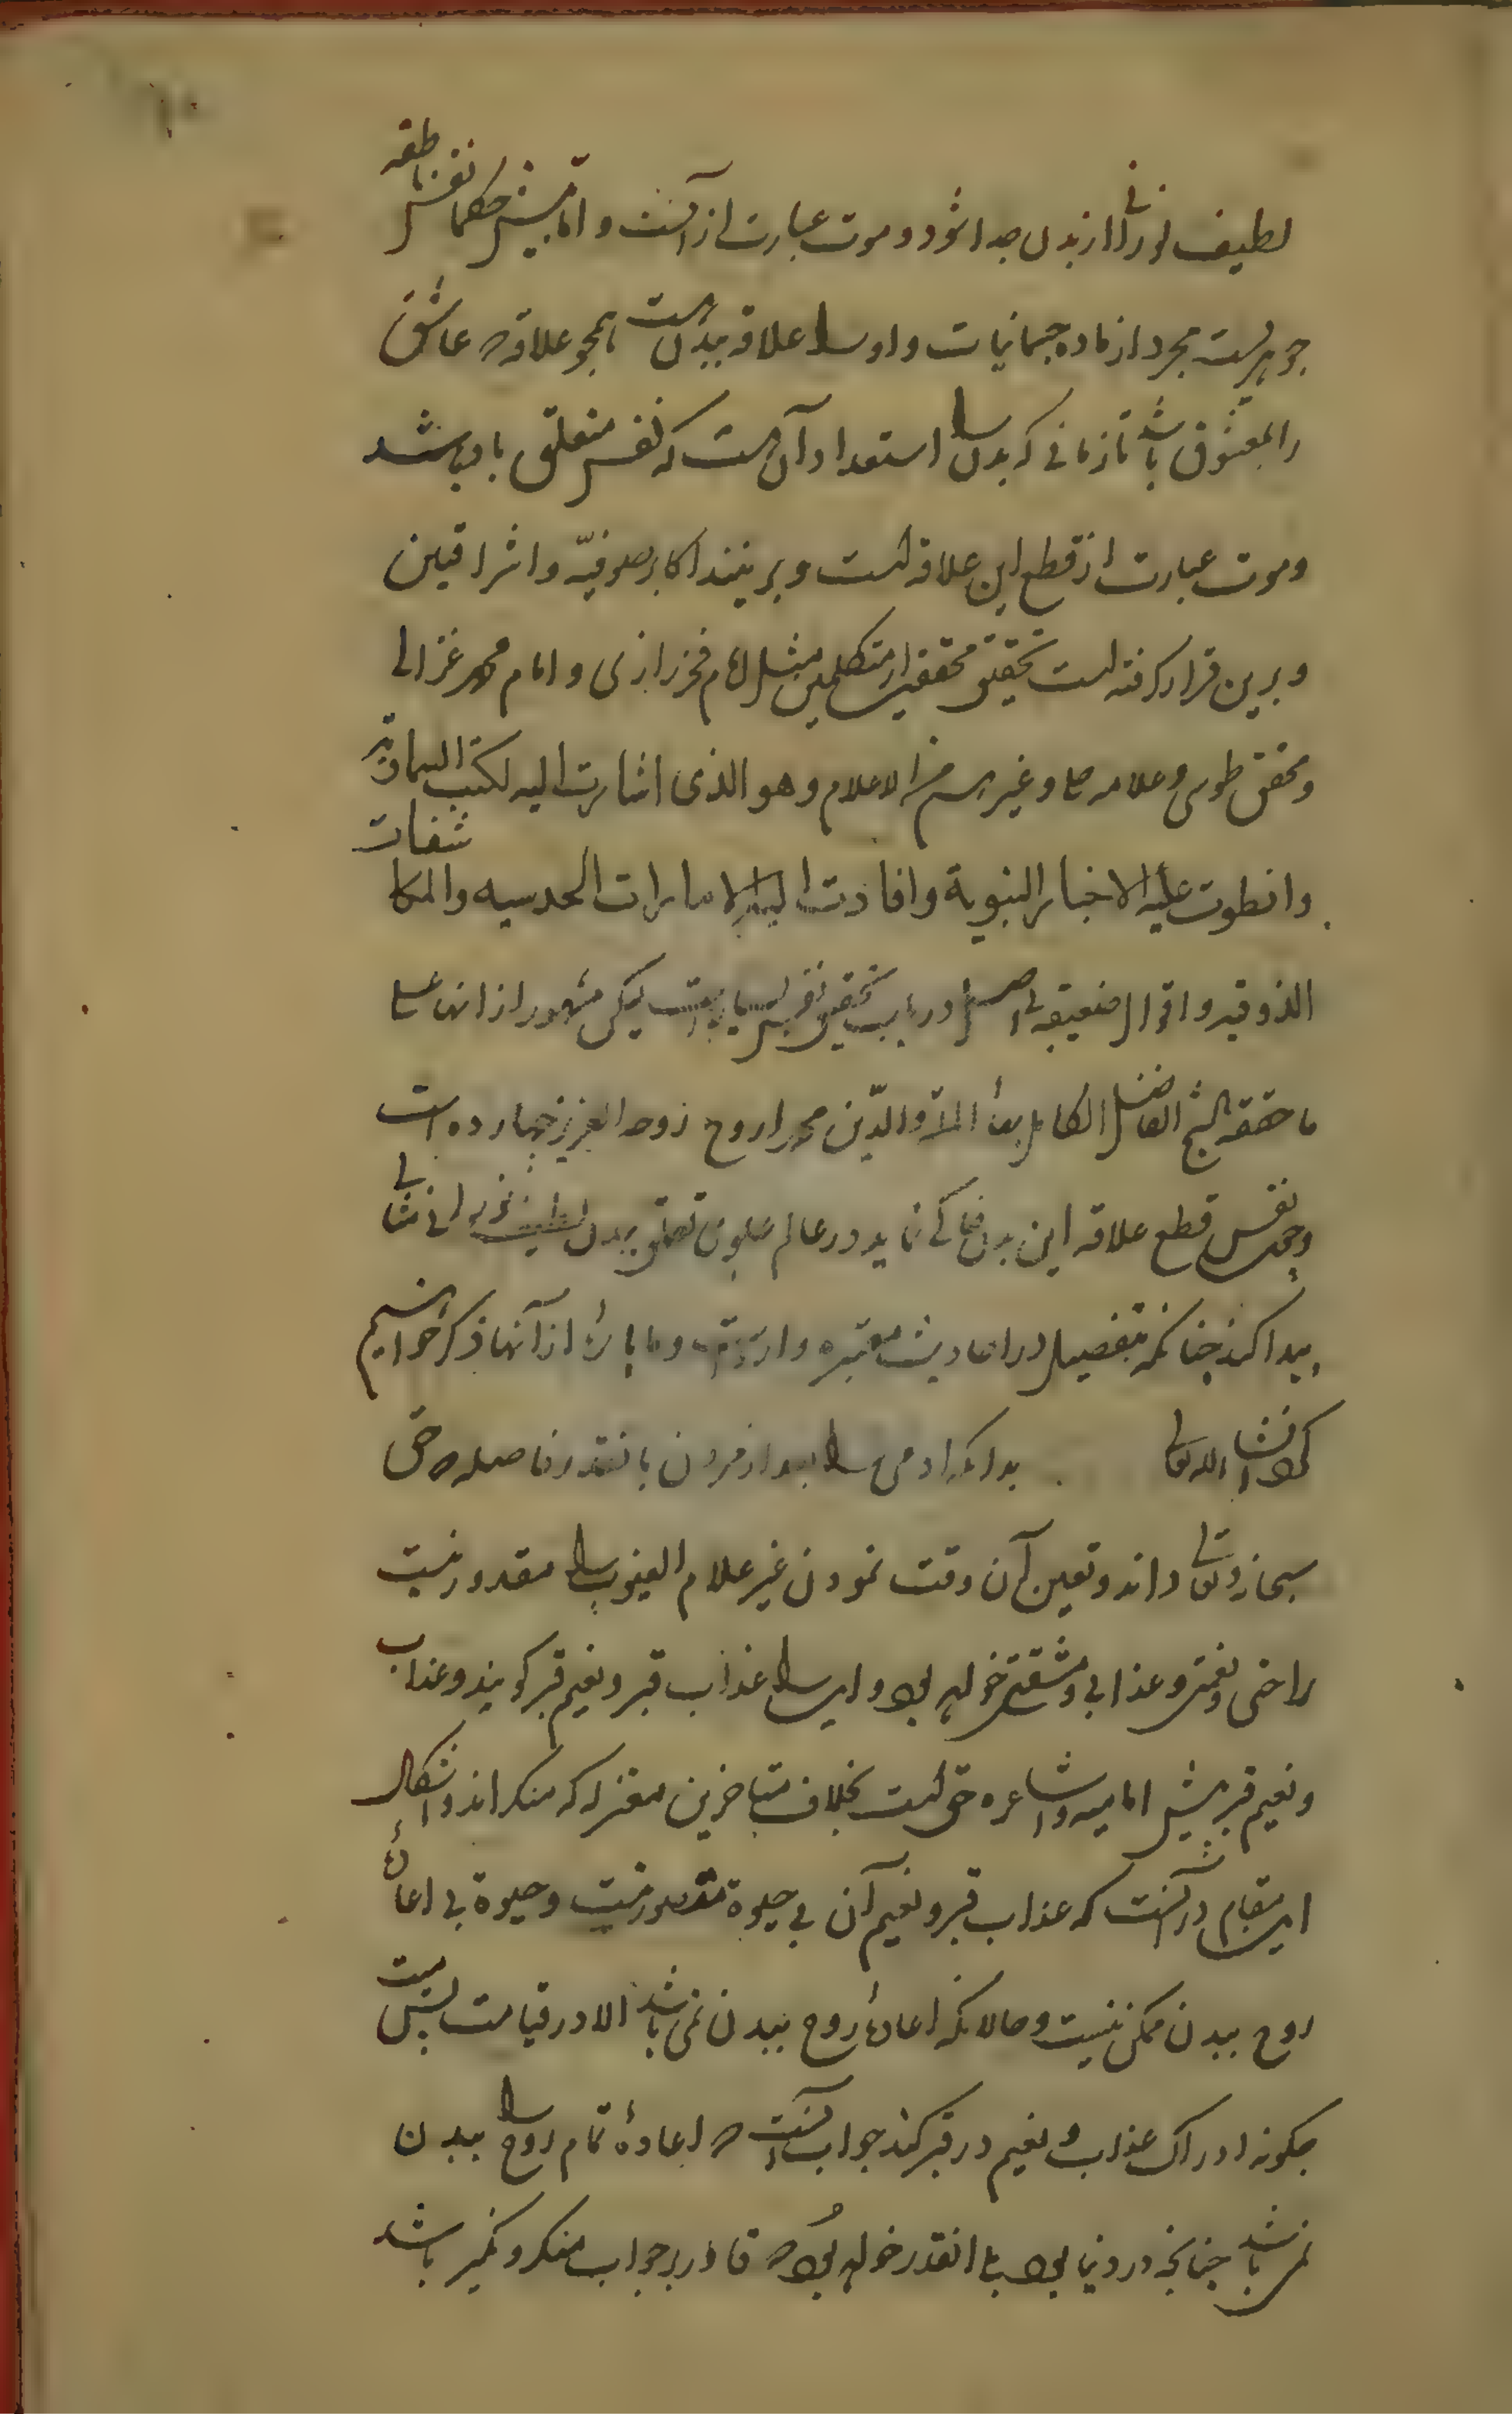 لطیف نورانی از بدن جدا شود و موت عبارت از آنست و اما پیش حکما نفس ناطقه
جوهریست مجرد از ماده جسمانیات و او را علاقه ببدن است همچو علاقه عاشق
را بمعشوق باشد تا زمانی که بدن را استعداد آن هست که نفس متعلق باو باشد
و موت عبارت از قطع این علاقه است و برینند اکابر صوفیّه و اشراقیین
و برین قرار گرفته است تحقیق محققین از متکلمین مثل امام فخر رازی و امام محمد غزالی
و محقق طوسی و علامه حلی و غیرهم من الاعلام و هو الذی اشارت الیه لکتب السماویه
وانطوت علیه الاخبار النبویة وافادت الیه الامارات الحدسیه والمکاشفات
الذوقیه و اقوال ضعیفه بی اصل در باب تحقیق نفس بسیار است لیکن مشهور از انها علی
ما حققه الشیخ الفاضل الکامل بهاء الملّة والدّین محمد اروح روحه العزیز چهارده است
و چون نفس قطع علاقه این بدن خاکی نماید در عالم علوی تعلق ببدن لطیف نورانی مثالی
پیدا کند چنانکه بتفصیل در احادیث معتبره وارد است و ما پاره از آنها ذکر خواهیم
کرد انشاء الله تعالی بدانکه آدمی را بعد از مردن بانقدر فاصله که حق
سبحانه و تعالی داند و تعیین آن وقت نمودن غیر علام الغیوب را مقدور نیست
راحتی و نعمتی و عذابی و مشقتی خواهد بود و این را عذاب قبر و نعیم قبر گویند و عذاب
و نعیم قبر پیش امامیه و اشاعره حق است بخلاف متاخرین معتزله که منکراند و اشکال
این مقام در آنست که عذاب قبر و نعیم آن بی حیوة متصور نیست و حیوة بی اعادهٔ
روح ببدن ممکن نیست و حالانکه اعادهٔ روح ببدن نمی باشد الا در قیامت پس میت
چگونه ادراک عذاب و نعیم در قبر کند جواب آنست که اعادهٔ تمام روح را ببدن
نمی باشد چنانچه در دنیا بود بلی انقدر خواهد بود که قادر بر جواب منکر و نکیر باشد